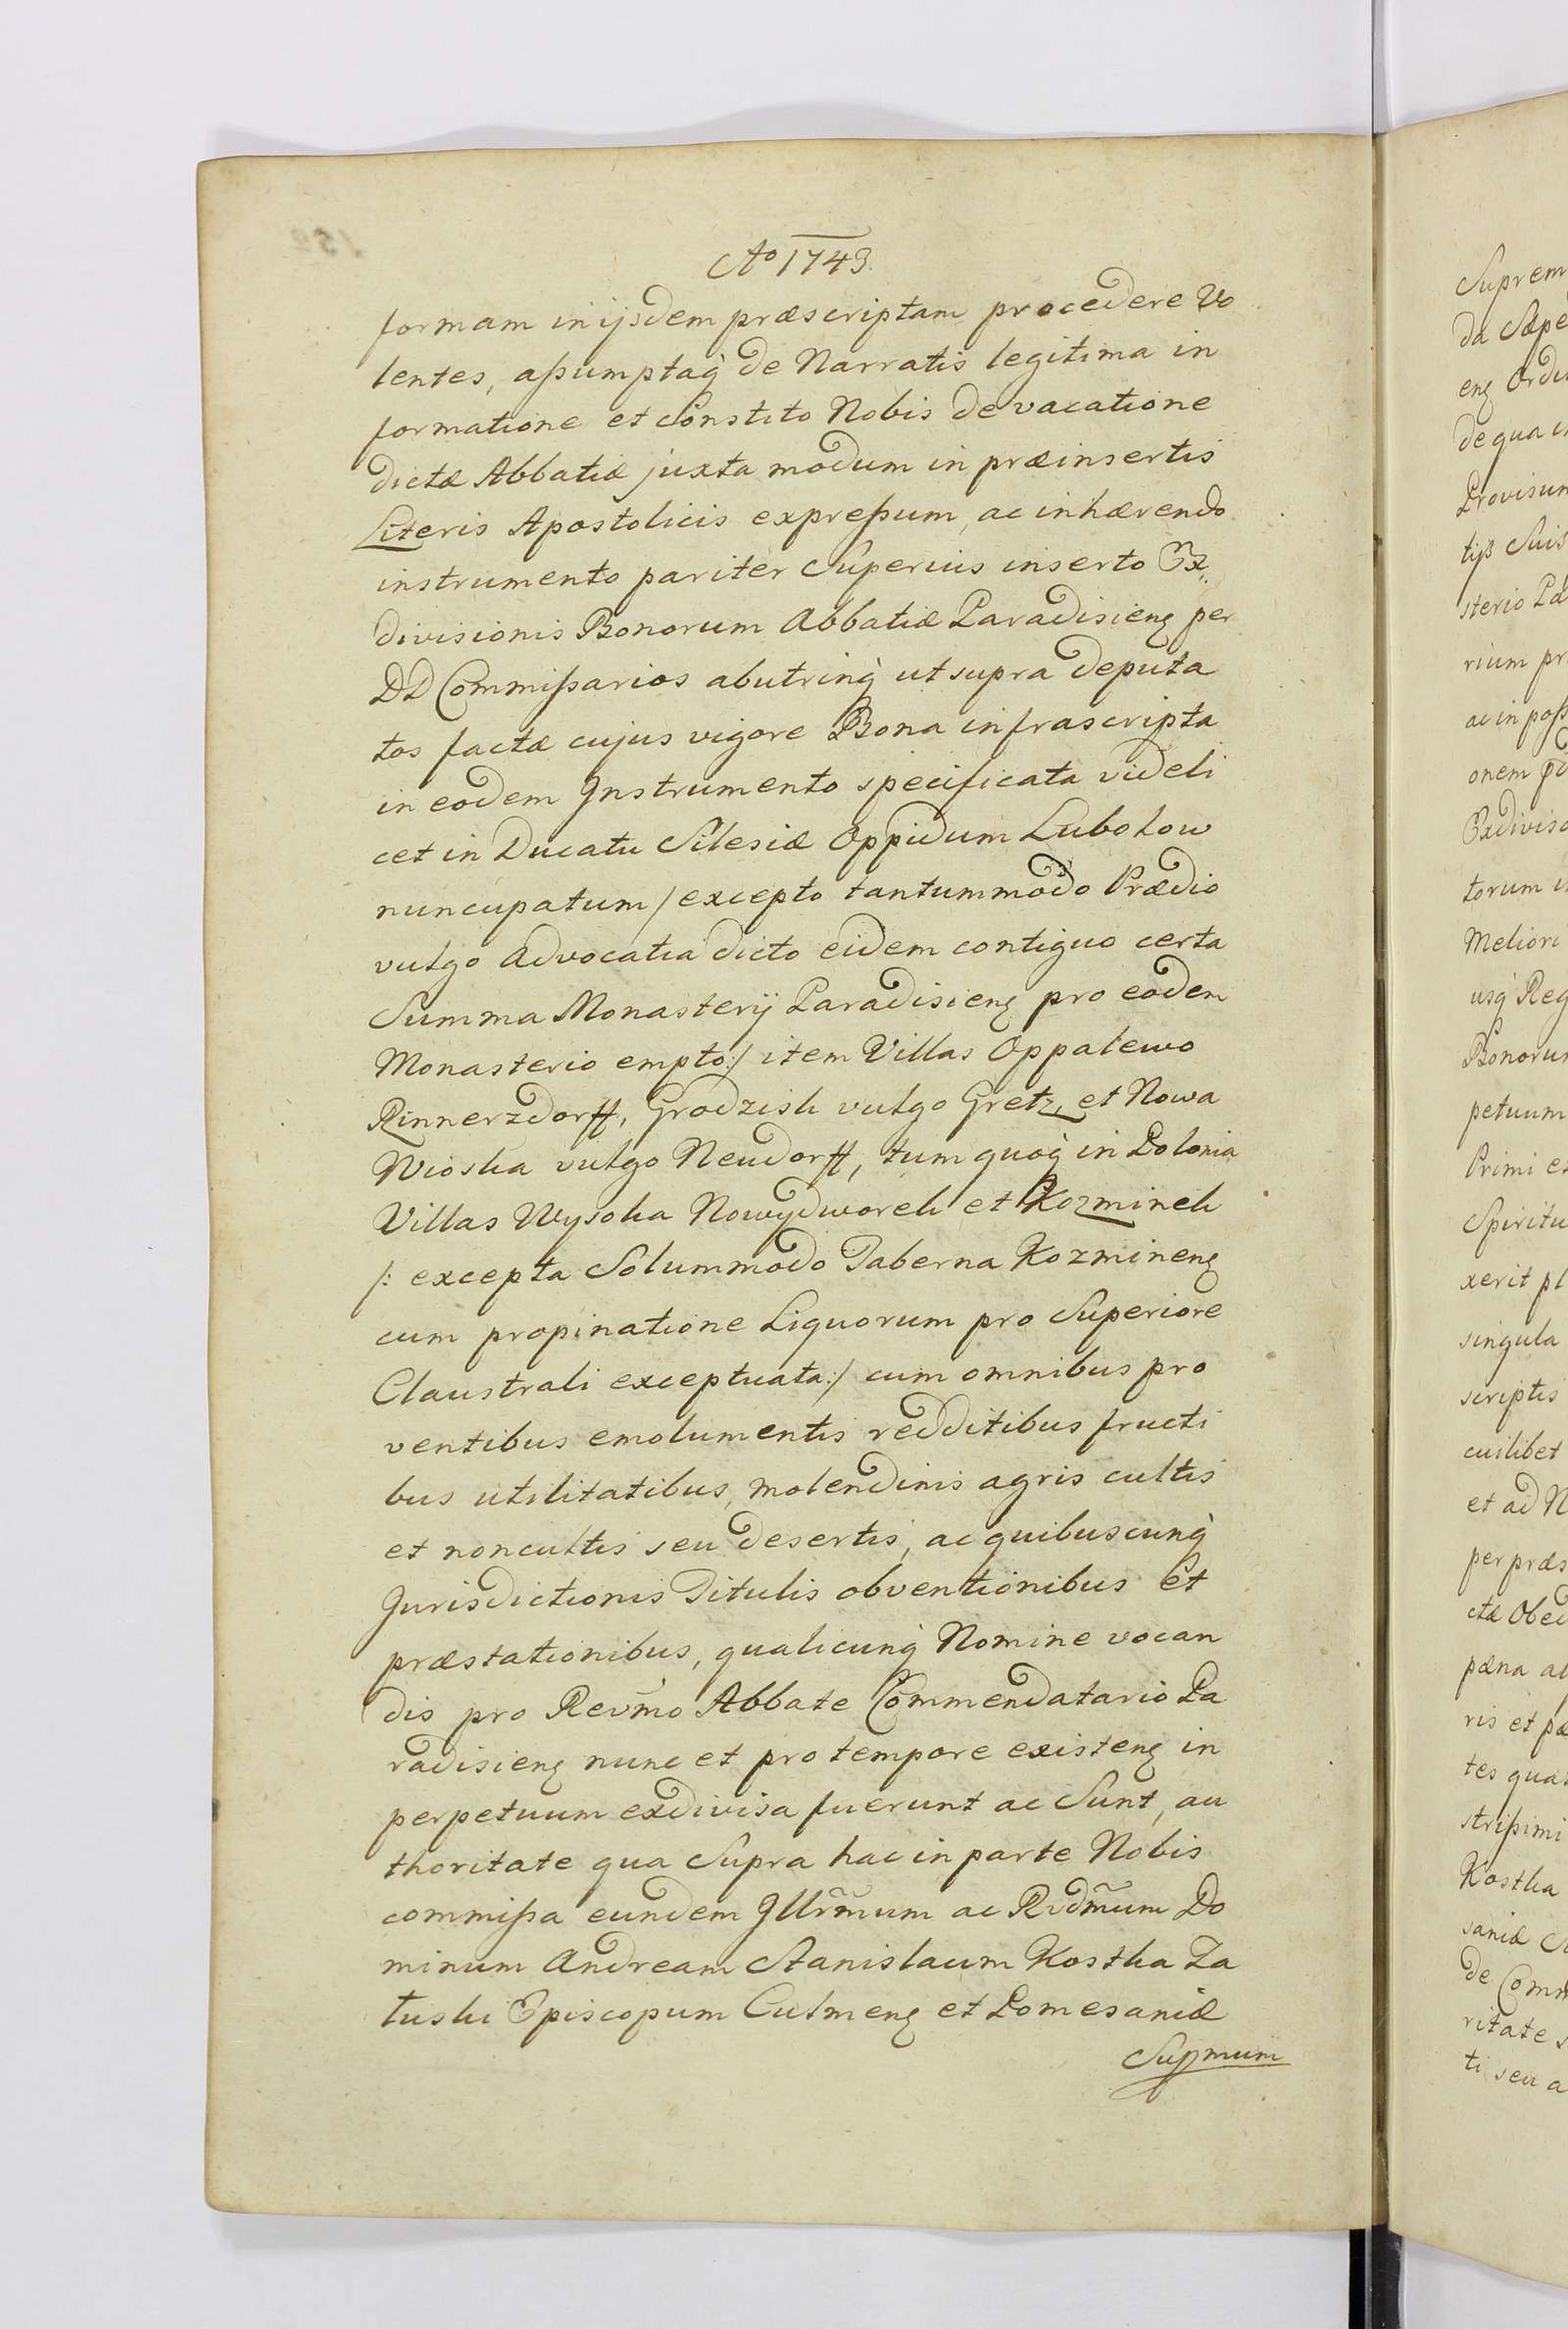 Ao 1743.
formam in ijsdem præscriptam procedere vo
lentes, aßumptaq́ de Narratis legitima in
formatione et Constito Nobis de vacatione
dictæ Abbatiæ juxta modum in præinsertis
Literis Apostolicis expreßum, ac inhærendo
instrumento pariter Superius inserto Ex
divisionis Bonorum Abbatiæ Paradisienȝ per
DD Commißarios abutrinq́ ut supra deputa
tos factæ cujus vigore Bona infrascripta
in eodem Instrumento specificata videli
cet in Ducatu Silesiæ Oppidum Lubolow
nuncupatum /excepto tantummodo Prædio
vulgo Advocatia dicto eidem contiguo certa
Summa Monasterij Paradisienȝ pro eodem
Monasterio empto:/ item Villas Oppalewo
Rinnerzdorff, Grodzisk vulgo Gretz, et Nowa
Wioska vulgo Neudorff, tum quoq́ in Polonia
Villas Wysoka Nowydworek et Kozminek
/: excepta Solummodo Taberna Kozminenȝ
cum propinatione Liquorum pro Superiore
Claustrali exceptuata:/ cum omnibus pro
ventibus emolumentis redditibus fructi
bus utilitatibus, molendinis agris cultis
et noncultis seu desertis, ac quibuscunq́
Jurisdictionis Titulis obventionibus et
præstationibus, qualicunq́ Nomine vocan
dis pro Reṽmo Abbate Commendatario Pa
radisienȝ nunc et pro tempore existenȝ in
perpetuum exdivisa fuerunt ac Sunt, au
thoritate qua Supra hac in parte Nobis
commißa eundem Illr̃mum ac Rvdm̃um Do
minum Andream Stanislaum Kostka Za
luski Episcopum Culmenȝ et Pomesaniæ
Supmum
Suprem
da Sæpe
enȝ Ordi
de qua i
Provisum
tiß Suis
sterio Pa
rium pr
ac in poß
onem
Exdiviso
torum i
Meliori
usq́ Reg
Bonorum
petuum
Primi et
Spiritu
xerit pl
singula
scriptis
cuilibet
et ad N
per præs
ctæ Obed
pæna al
ris et pæ
tes qua
strißimi
Kostka
saniæ Su
de Comm
ritate s
ti seu a